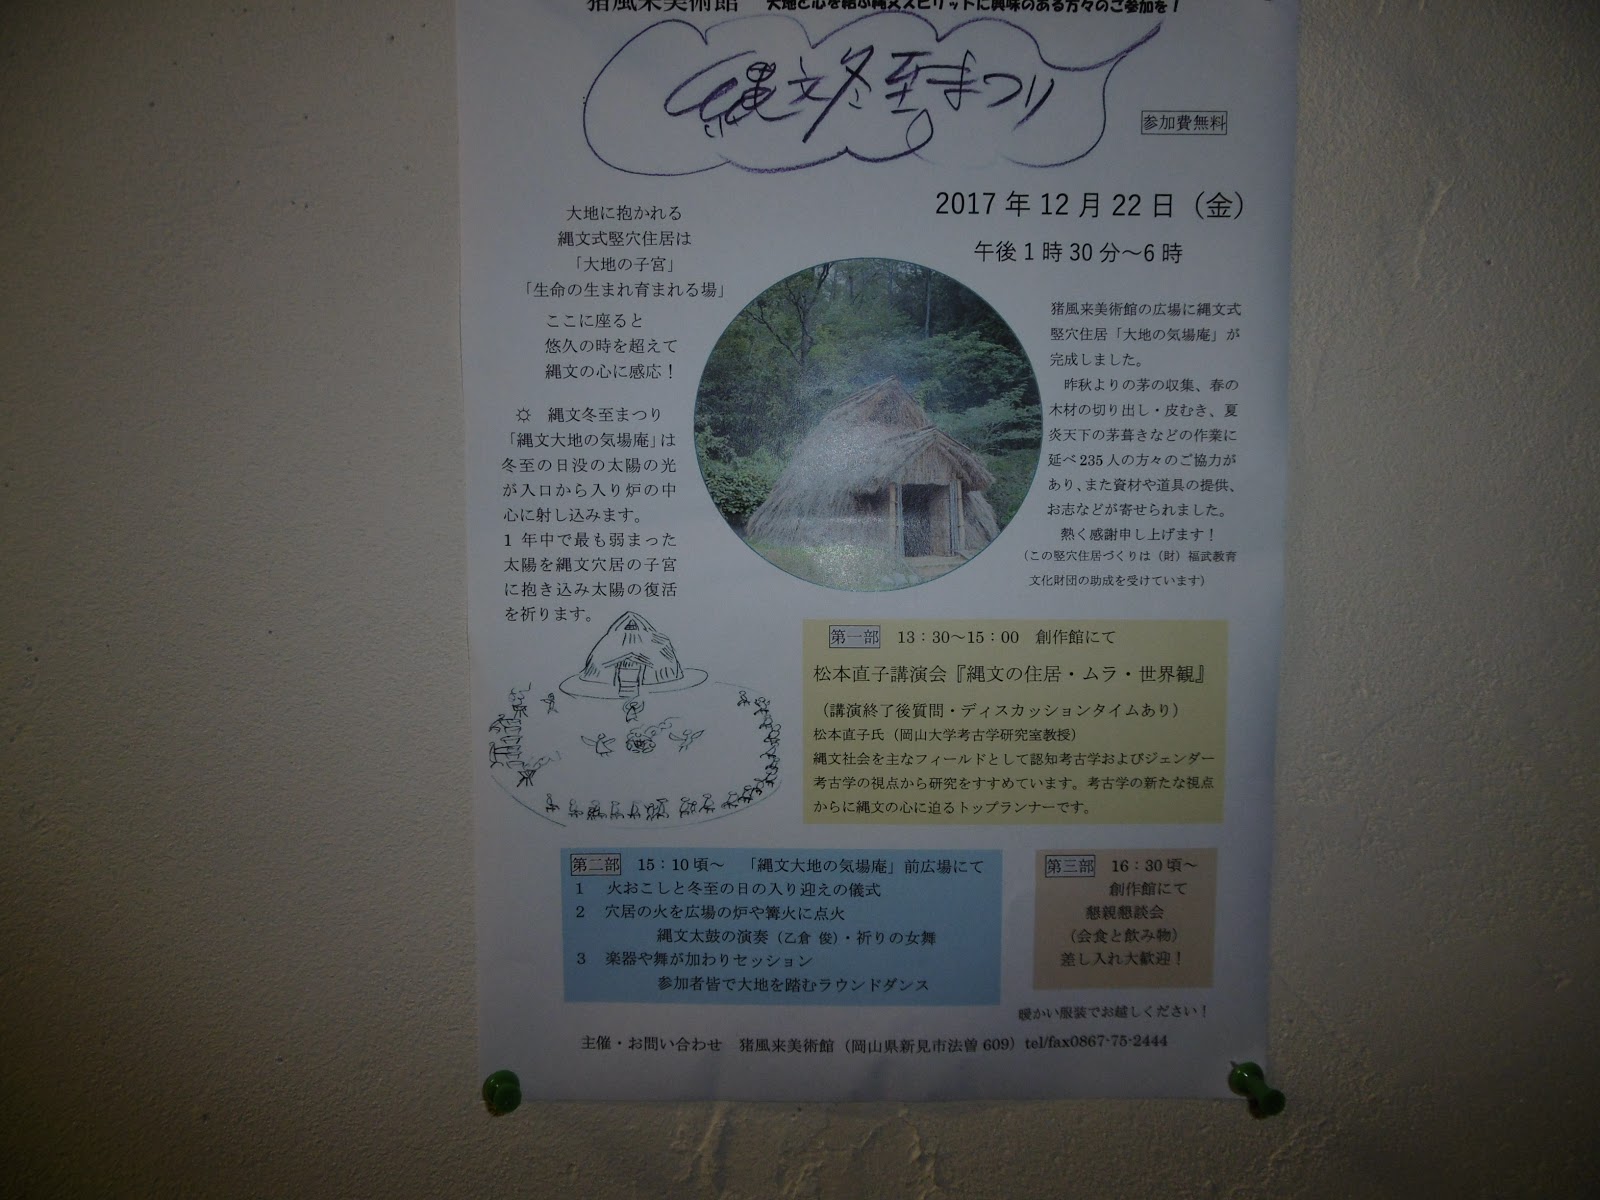 猪風来美術館　大地と心を結ぶ縄文スピリットに興味のある方々のご参加を！
縄文冬至まつり
参加費無料
2017 年 12 月 22 日（金）
午後 1 時 30 分～6 時
大地に抱かれる
縄文式竪穴住居は
「大地の子宮」
「生命の生まれ育まれる場」
ここに座ると
悠久の時を超えて
縄文の心に感応！
☼　縄文冬至まつり
「縄文大地の気場庵」は
冬至の日没の太陽の光
が入口から入り炉の中
心に射し込みます。
1 年中で最も弱まった
太陽を縄文穴居の子宮
に抱き込み太陽の復活
を祈ります。
猪風来美術館の広場に縄文式
竪穴住居「大地の気場庵」が
完成しました。
昨秋よりの茅の収集、春の
木材の切り出し・皮むき、夏
炎天下の茅葺きなどの作業に
延べ 235 人の方々のご協力が
あり、また資材や道具の提供、
お志などが寄せられました。
熱く感謝申し上げます！
（この竪穴住居づくりは（財）福武教育
文化財団の助成を受けています）
第一部　13：30～15：00　創作館にて
松本直子講演会『縄文の住居・ムラ・世界観』
（講演終了後質問・ディスカッションタイムあり）
松本直子氏（岡山大学考古学研究室教授）
縄文社会を主なフィールドとして認知考古学およびジェンダー
考古学の視点から研究をすすめています。考古学の新たな視点
からに縄文の心に迫るトップランナーです。
第二部　15：10 頃～　「縄文大地の気場庵」前広場にて
1　火おこしと冬至の日の入り迎えの儀式
2　穴居の火を広場の炉や篝火に点火
縄文太鼓の演奏（乙倉 俊）・祈りの女舞
3　楽器や舞が加わりセッション
参加者皆で大地を踏むラウンドダンス
第三部　16：30 頃～
創作館にて
懇親懇談会
（会食と飲み物）
差し入れ大歓迎！
暖かい服装でお越しください！
主催・お問い合わせ　猪風来美術館（岡山県新見市法曽 609）tel/fax0867-75-2444